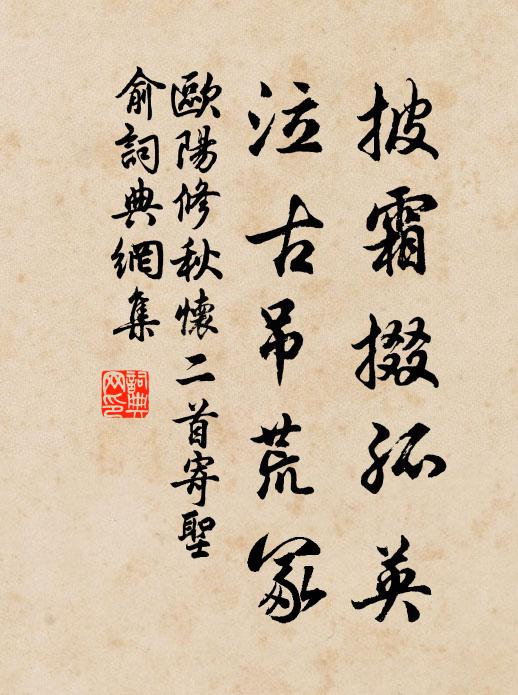 披霜掇孤英
泣古吊荒冢
歐陽修秋懷二首寄聖
俞詞典網集
詞典
网印